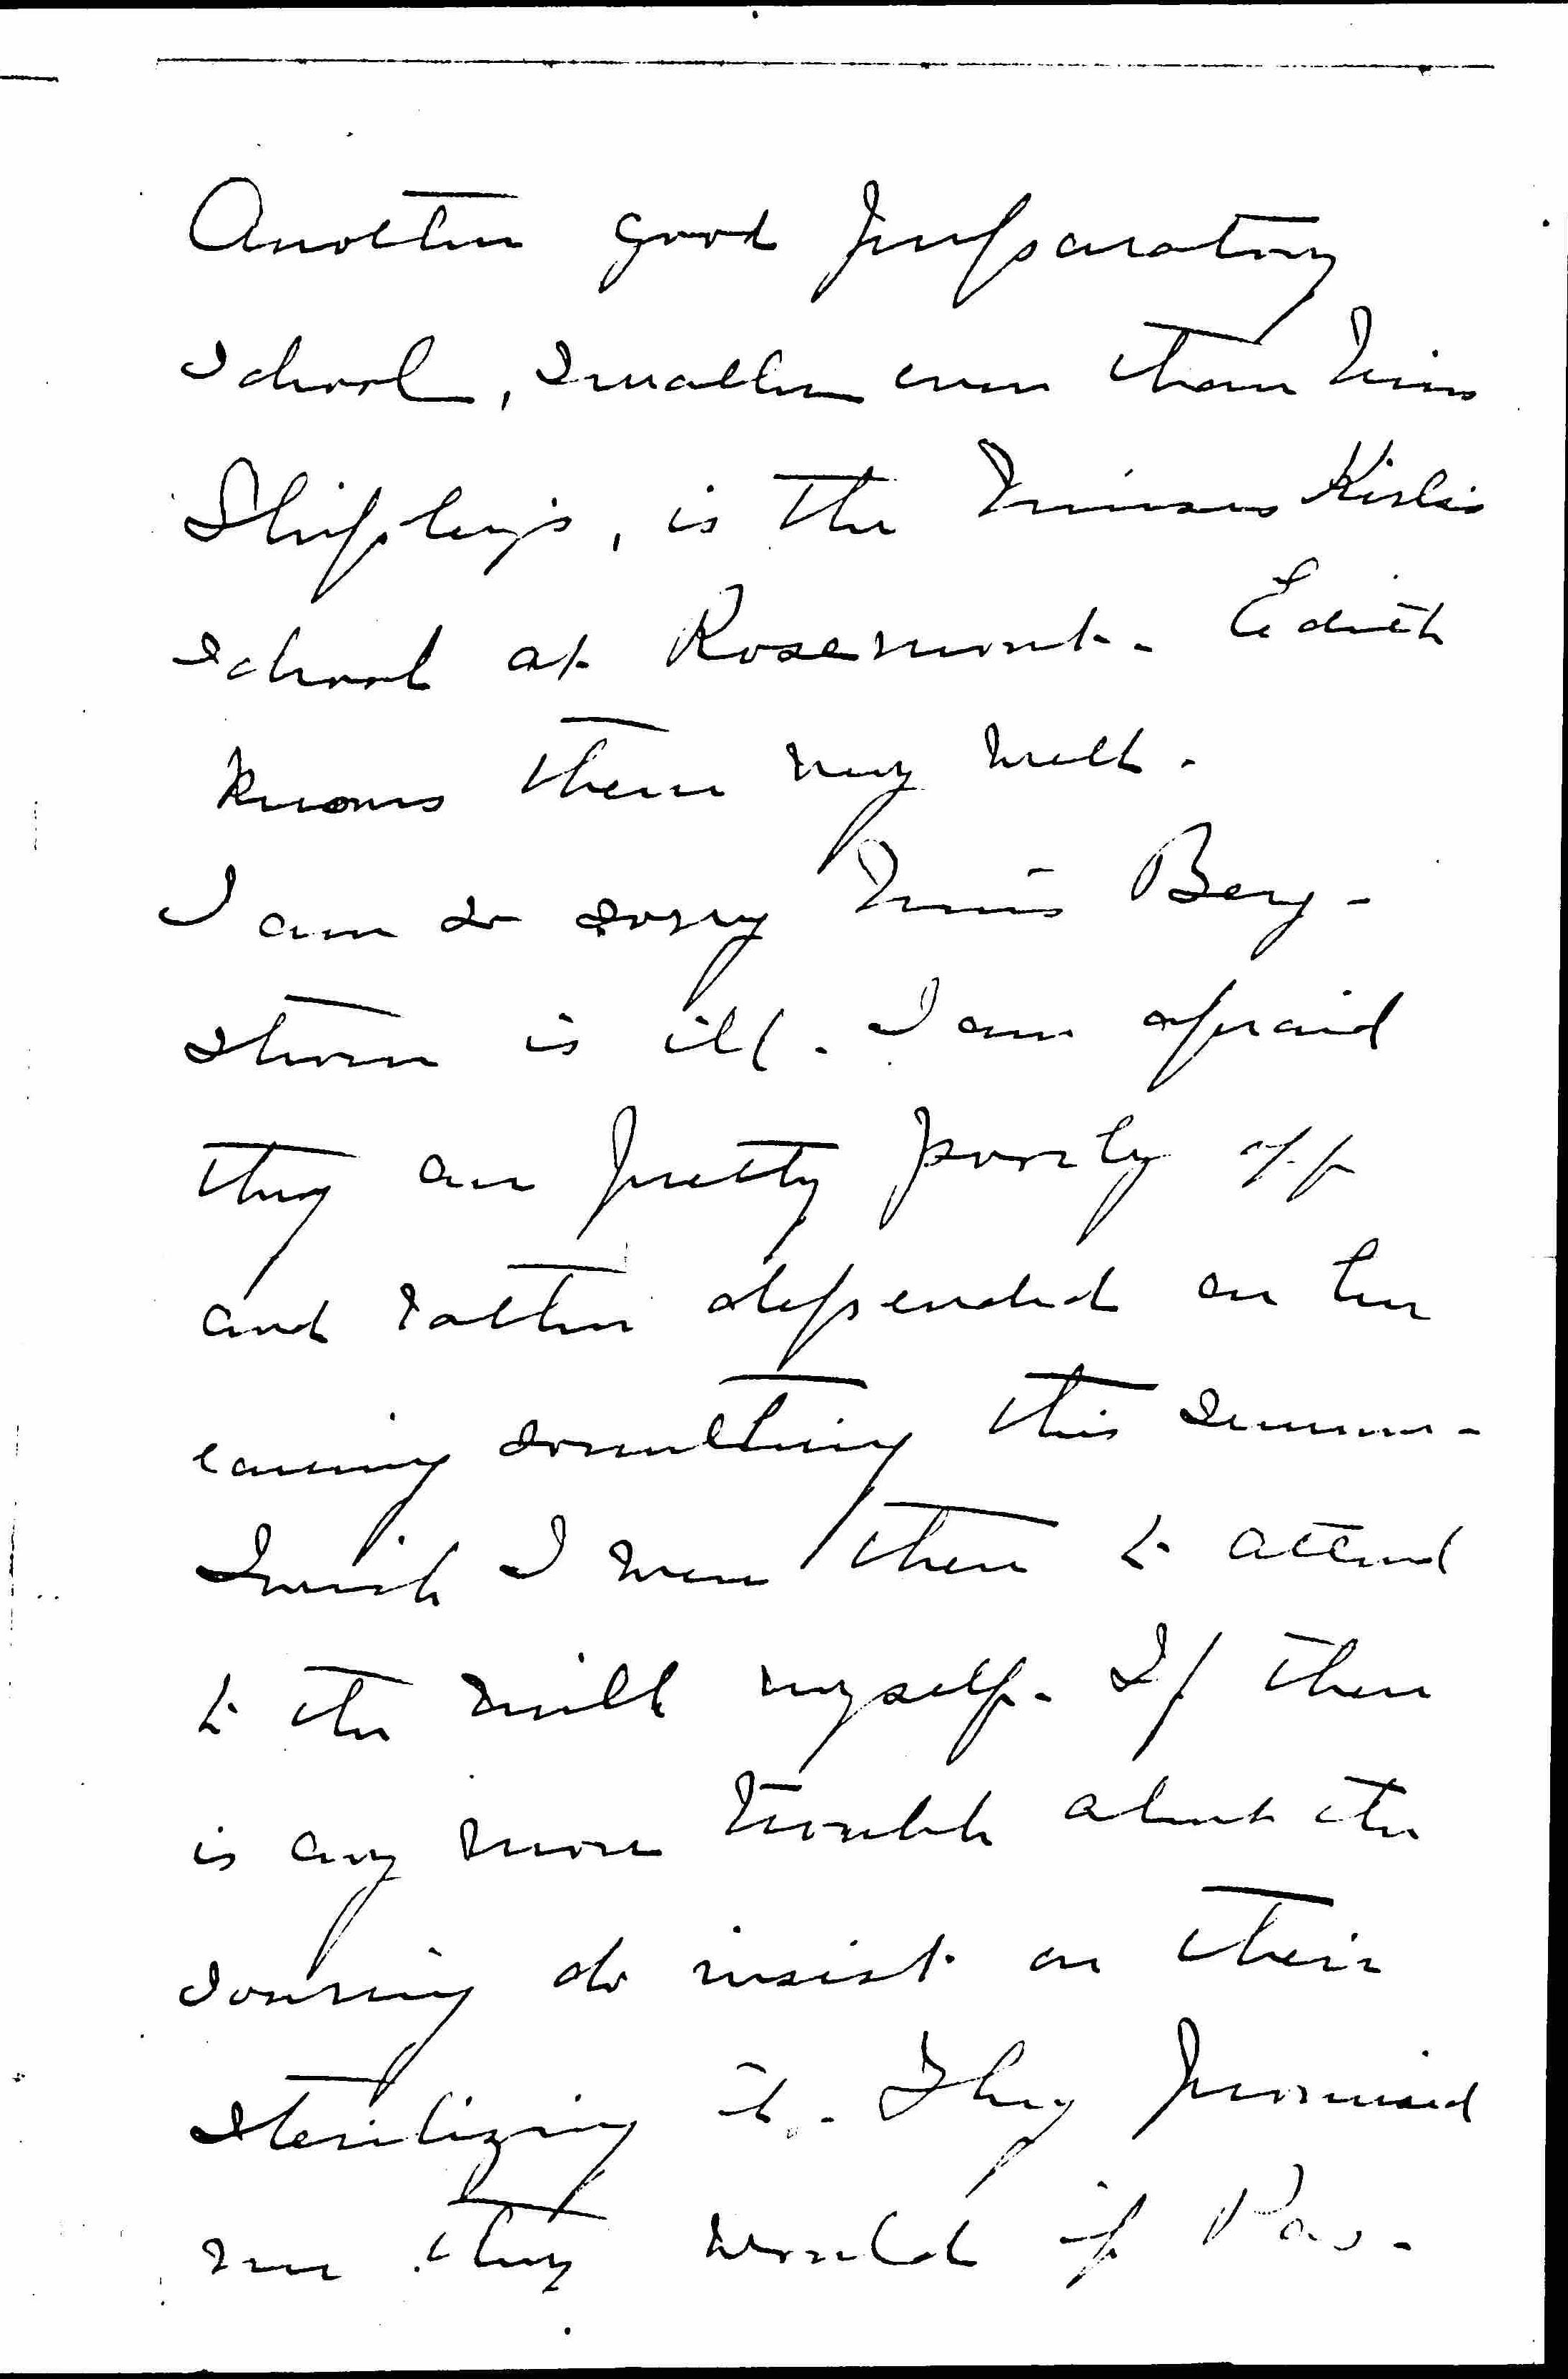 Another good preparatory
school, smaller even than Miss
Shipley's, is the Misses Kirk's
school at Rosemont. Edith
knows them very well.
I am so sorry Miss Berg-
strom is ill. I am afraid
they are pretty poorly off
and rather depended on her
earning something this summer.
I wish I were there to attend
to the milk myself. If there
is any more trouble about its
souring do insist on their
sterilizing it. They promised
me they would if Pas-